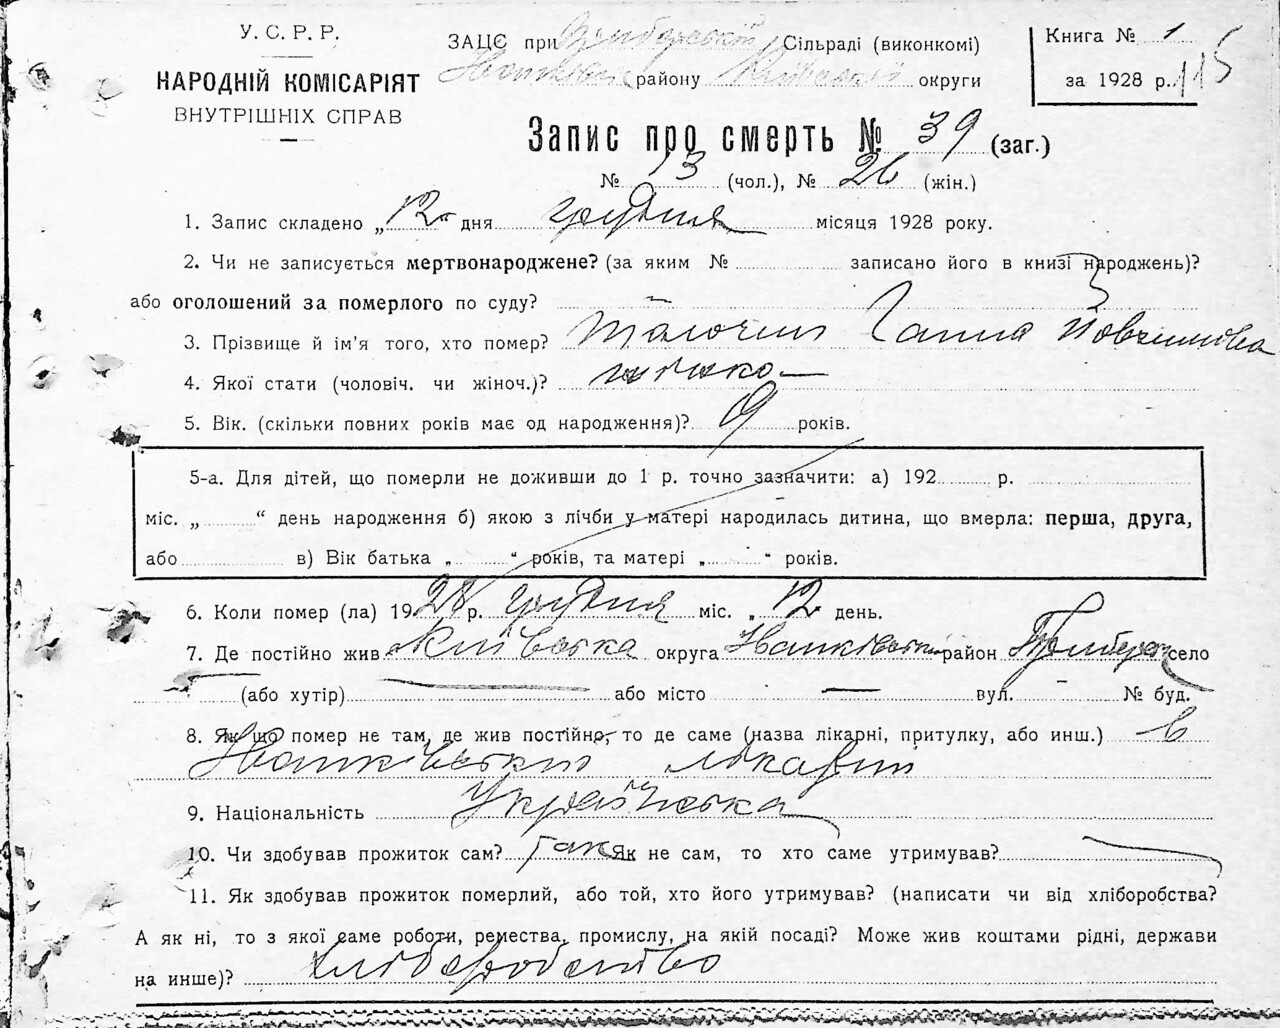 У. С. Р. Р.
НАРОДНІЙ КОМІСАРІЯТ
ВНУТРІШНІХ СПРАВ
ЗАЦС при Сільраді (виконкомі)
району Київської округи
Книга № 1
за 1928 р. 115
Запис про смерть № 39 (заг.)
№ 13 (чол.), № 26 (жін.)
1. Запис складено „ 12 дня грудня місяця 1928 року.
2. Чи не записується мертвонароджене? (за яким № записано його в книзі народжень)?
або оголошений за померлого по суду? —
3. Прізвище й ім'я того, хто помер? Толочин Ганна
4. Якої стати (чоловіч. чи жіноч.)?
5. Вік. (скільки повних років має од народження)? років.
5-а. Для дітей, що померли не доживши до 1 р. точно зазначити: а) 192 р.
міс. „ “ день народження б) якою з лічби у матері народилась дитина, що вмерла: перша, друга,
або в) Вік батька „ “ років, та матері „ “ років.
6. Коли помер (ла) 1928 р. грудня міс. „ 12 день.
7. Де постійно жив Київська округа Іванківськ район село
(або хутір) або місто — вул. № буд.
8. Як що помер не там, де жив постійно, то де саме (назва лікарні, притулку, або инш.) в
Іванківській лікарні
9. Національність Українська
10. Чи здобував прожиток сам? так Як не сам, то хто саме утримував?
11. Як здобував прожиток померлий, або той, хто його утримував? (написати чи від хліборобства?
А як ні, то з якої саме роботи, ремества, промислу, на якій посаді? Може жив коштами рідні, держави
на инше)? хліборобство